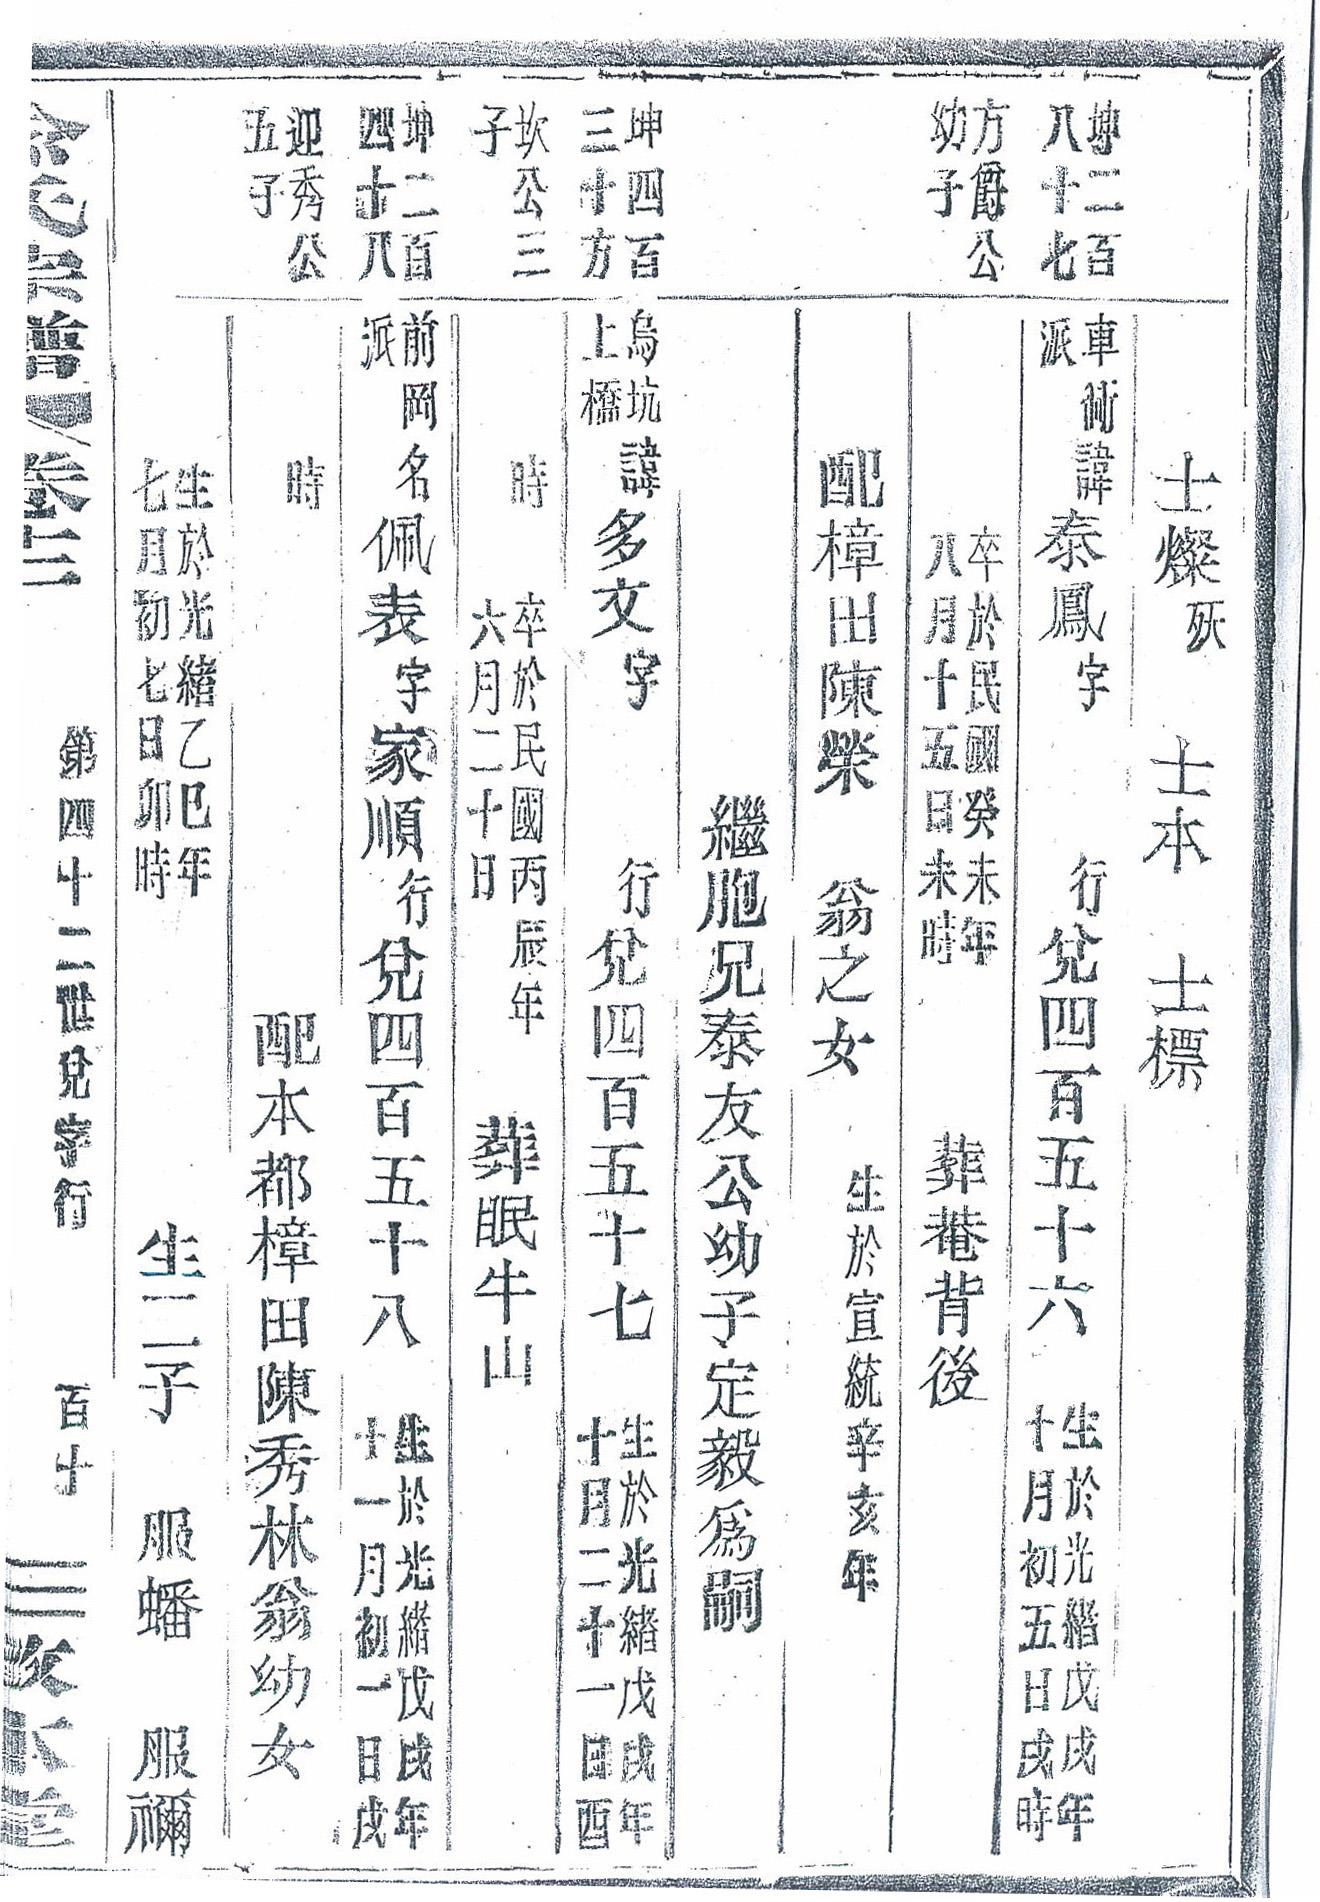 士燦 殀 士本 士標
坤二百
八十七
車衕
派
諱泰鳳字 行兌四百五十六
生於光緒戊戌年
十月初五日戌時
方爵公
幼子
卒於民國癸未年
八月十五日未時
葬菴背後
配樟田陳榮 翁之女
生於宣統辛亥年
繼胞兄泰友公幼子定毅爲嗣
坤四百
三十方
烏坑
上橋
諱多文字 行兌四百五十七
生於光緒戊戌年
十月二十一日酉
坎公三
子
時
卒於民國丙辰年
六月二十日
葬眠牛山
坤二百
四十八
前岡
派
名佩表字家順行兌四百五十八
生於光緒戊戌年
十一月初一日戌
迎秀公
五子
時
配本都樟田陳秀林翁幼女
生於光緒乙巳年
七月初七日卯時
生二子 服蟠 服禰
氏宗譜 卷十二
第四十二世兌字行
百十